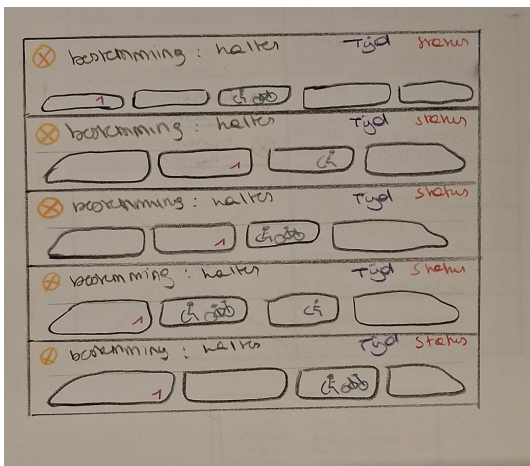 bestemming : haltes Tijd Status
1
bestemming : haltes Tijd Status
1
bestemming : haltes Tijd Status
1
bestemming : haltes Tijd Status
1
bestemming : haltes Tijd Status
1